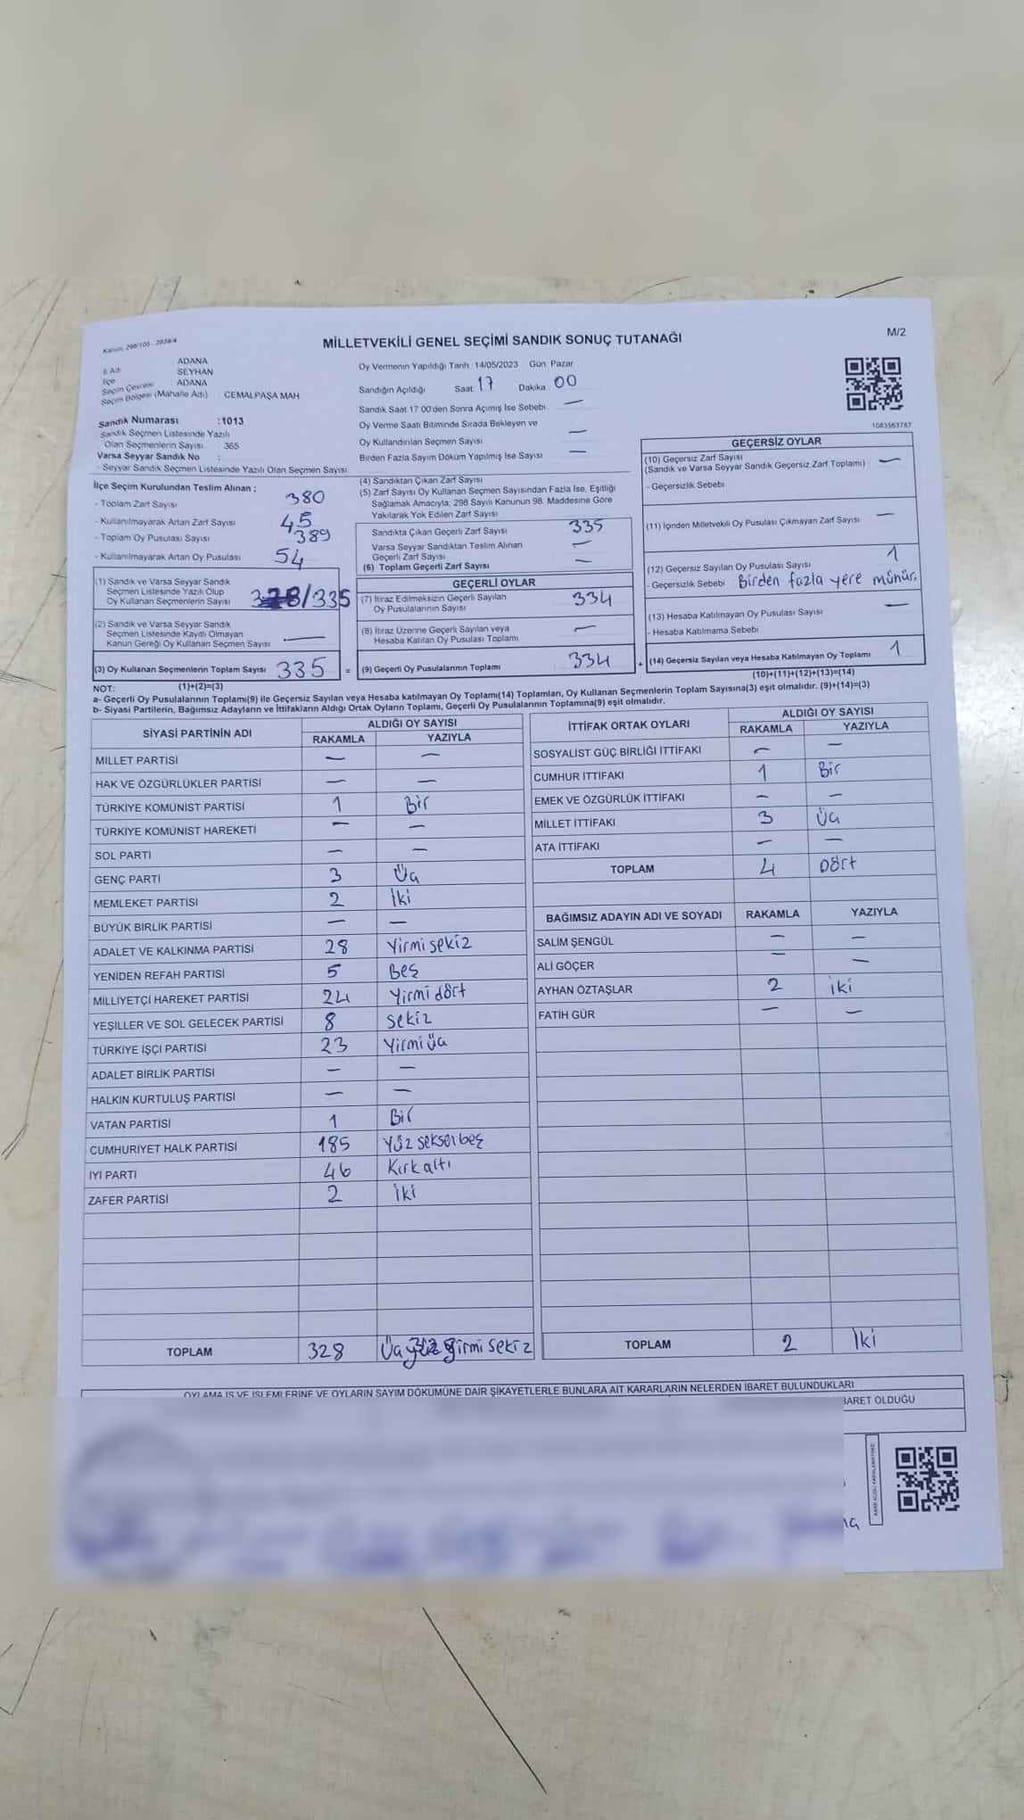 Kanun: 298/105 - 2839/4
MİLLETVEKİLİ GENEL SEÇİMİ SANDIK SONUÇ TUTANAĞI
M/2
İl Adı ADANA
İlçe SEYHAN
Seçim Çevresi ADANA
Seçim Bölgesi (Mahalle Adı) CEMALPAŞA MAH
Sandık Numarası :1013
Sandık Seçmen Listesinde Yazılı
Olan Seçmenlerin Sayısı 365
Varsa Seyyar Sandık No :
- Seyyar Sandık Seçmen Listesinde Yazılı Olan Seçmen Sayısı
Oy Vermenin Yapıldığı Tarih :14/05/2023 Gün: Pazar
Sandığın Açıldığı Saat 17 Dakika 00
Sandık Saat 17 00'den Sonra Açılmış İse Sebebi —
Oy Verme Saati Bitiminde Sırada Bekleyen ve
Oy Kullandırılan Seçmen Sayısı —
Birden Fazla Sayım Döküm Yapılmış İse Sayısı —
1083563787
İlçe Seçim Kurulundan Teslim Alınan :
- Toplam Zarf Sayısı 380
- Kullanılmayarak Artan Zarf Sayısı 45
- Toplam Oy Pusulası Sayısı 389
- Kullanılmayarak Artan Oy Pusulası 54
(1) Sandık ve Varsa Seyyar Sandık
Seçmen Listesinde Yazılı Olup
Oy Kullanan Seçmenlerin Sayısı 328/335
(2) Sandık ve Varsa Seyyar Sandık
Seçmen Listesinde Kayıtlı Olmayan
Kanun Gereği Oy Kullanan Seçmen Sayısı —
(3) Oy Kullanan Seçmenlerin Toplam Sayısı 335 =
(1)+(2)=(3)
(4) Sandıktan Çıkan Zarf Sayısı
(5) Zarf Sayısı Oy Kullanan Seçmen Sayısından Fazla İse, Eşitliği
Sağlamak Amacıyla, 298 Sayılı Kanunun 98. Maddesine Göre
Yakılarak Yok Edilen Zarf Sayısı
Sandıkta Çıkan Geçerli Zarf Sayısı 335
Varsa Seyyar Sandıktan Teslim Alınan
Geçerli Zarf Sayısı —
(6) Toplam Geçerli Zarf Sayısı —
GEÇERLİ OYLAR
(7) İtiraz Edilmeksizin Geçerli Sayılan
Oy Pusulalarının Sayısı 334
(8) İtiraz Üzerine Geçerli Sayılan veya
Hesaba Katılan Oy Pusulası Toplamı —
(9) Geçerli Oy Pusulalarının Toplamı 334 +
GEÇERSİZ OYLAR
(10) Geçersiz Zarf Sayısı
(Sandık ve Varsa Seyyar Sandık Geçersiz Zarf Toplamı) —
- Geçersizlik Sebebi
(11) İçinden Milletvekili Oy Pusulası Çıkmayan Zarf Sayısı —
(12) Geçersiz Sayılan Oy Pusulası Sayısı 1
- Geçersizlik Sebebi Birden fazla yere mühür.
(13) Hesaba Katılmayan Oy Pusulası Sayısı —
- Hesaba Katılmama Sebebi
(14) Geçersiz Sayılan veya Hesaba Katılmayan Oy Toplamı 1
(10)+(11)+(12)+(13)=(14)
NOT:
a- Geçerli Oy Pusulalarının Toplamı(9) ile Geçersiz Sayılan veya Hesaba katılmayan Oy Toplamı(14) Toplamları, Oy Kullanan Seçmenlerin Toplam Sayısına(3) eşit olmalıdır. (9)+(14)=(3)
b- Siyasi Partilerin, Bağımsız Adayların ve İttifakların Aldığı Ortak Oyların Toplamı, Geçerli Oy Pusulalarının Toplamına(9) eşit olmalıdır.
SİYASİ PARTİNİN ADI ALDIĞI OY SAYISI
RAKAMLA YAZIYLA
MİLLET PARTİSİ — —
HAK VE ÖZGÜRLÜKLER PARTİSİ — —
TÜRKİYE KOMÜNİST PARTİSİ 1 Bir
TÜRKİYE KOMÜNİST HAREKETİ — —
SOL PARTİ — —
GENÇ PARTİ 3 Üç
MEMLEKET PARTİSİ 2 İki
BÜYÜK BİRLİK PARTİSİ — —
ADALET VE KALKINMA PARTİSİ 28 Yirmi sekiz
YENİDEN REFAH PARTİSİ 5 Beş
MİLLİYETÇİ HAREKET PARTİSİ 24 Yirmi dört
YEŞİLLER VE SOL GELECEK PARTİSİ 8 Sekiz
TÜRKİYE İŞÇİ PARTİSİ 23 Yirmi üç
ADALET BİRLİK PARTİSİ — —
HALKIN KURTULUŞ PARTİSİ — —
VATAN PARTİSİ 1 Bir
CUMHURİYET HALK PARTİSİ 185 Yüz seksen beş
İYİ PARTİ 46 Kırk altı
ZAFER PARTİSİ 2 İki
TOPLAM 328 Üç yüz yirmi sekiz
İTTİFAK ORTAK OYLARI ALDIĞI OY SAYISI
RAKAMLA YAZIYLA
SOSYALİST GÜÇ BİRLİĞİ İTTİFAKI — —
CUMHUR İTTİFAKI 1 Bir
EMEK VE ÖZGÜRLÜK İTTİFAKI — —
MİLLET İTTİFAKI 3 Üç
ATA İTTİFAKI — —
TOPLAM 4 Dört
BAĞIMSIZ ADAYIN ADI VE SOYADI RAKAMLA YAZIYLA
SALİM ŞENGÜL — —
ALİ GÖÇER — —
AYHAN ÖZTAŞLAR 2 iki
FATİH GÜR — —
TOPLAM 2 İki
OYLAMA İŞ VE İŞLEMLERİNE VE OYLARIN SAYIM DÖKÜMÜNE DAİR ŞİKAYETLERLE BUNLARA AİT KARARLARIN NELERDEN İBARET BULUNDUKLARI
İBARET OLDUĞU